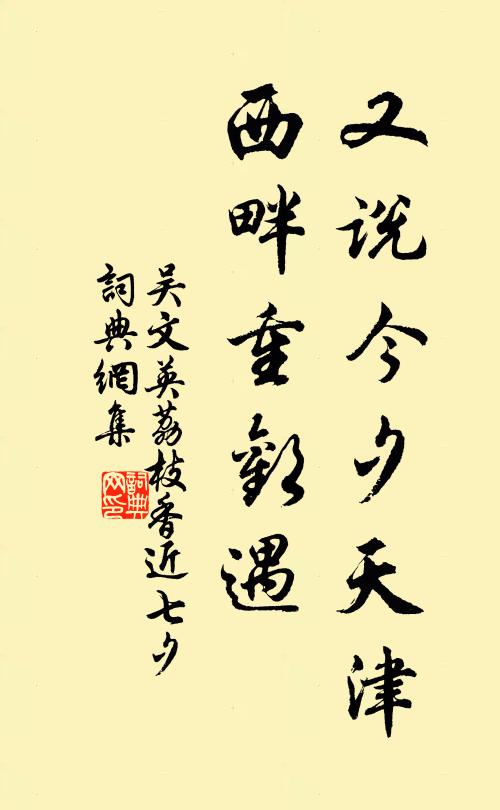 又説今夕天津
西畔重歡遇
吴文英荔枝香近七夕
詞典網集
詞典
网印